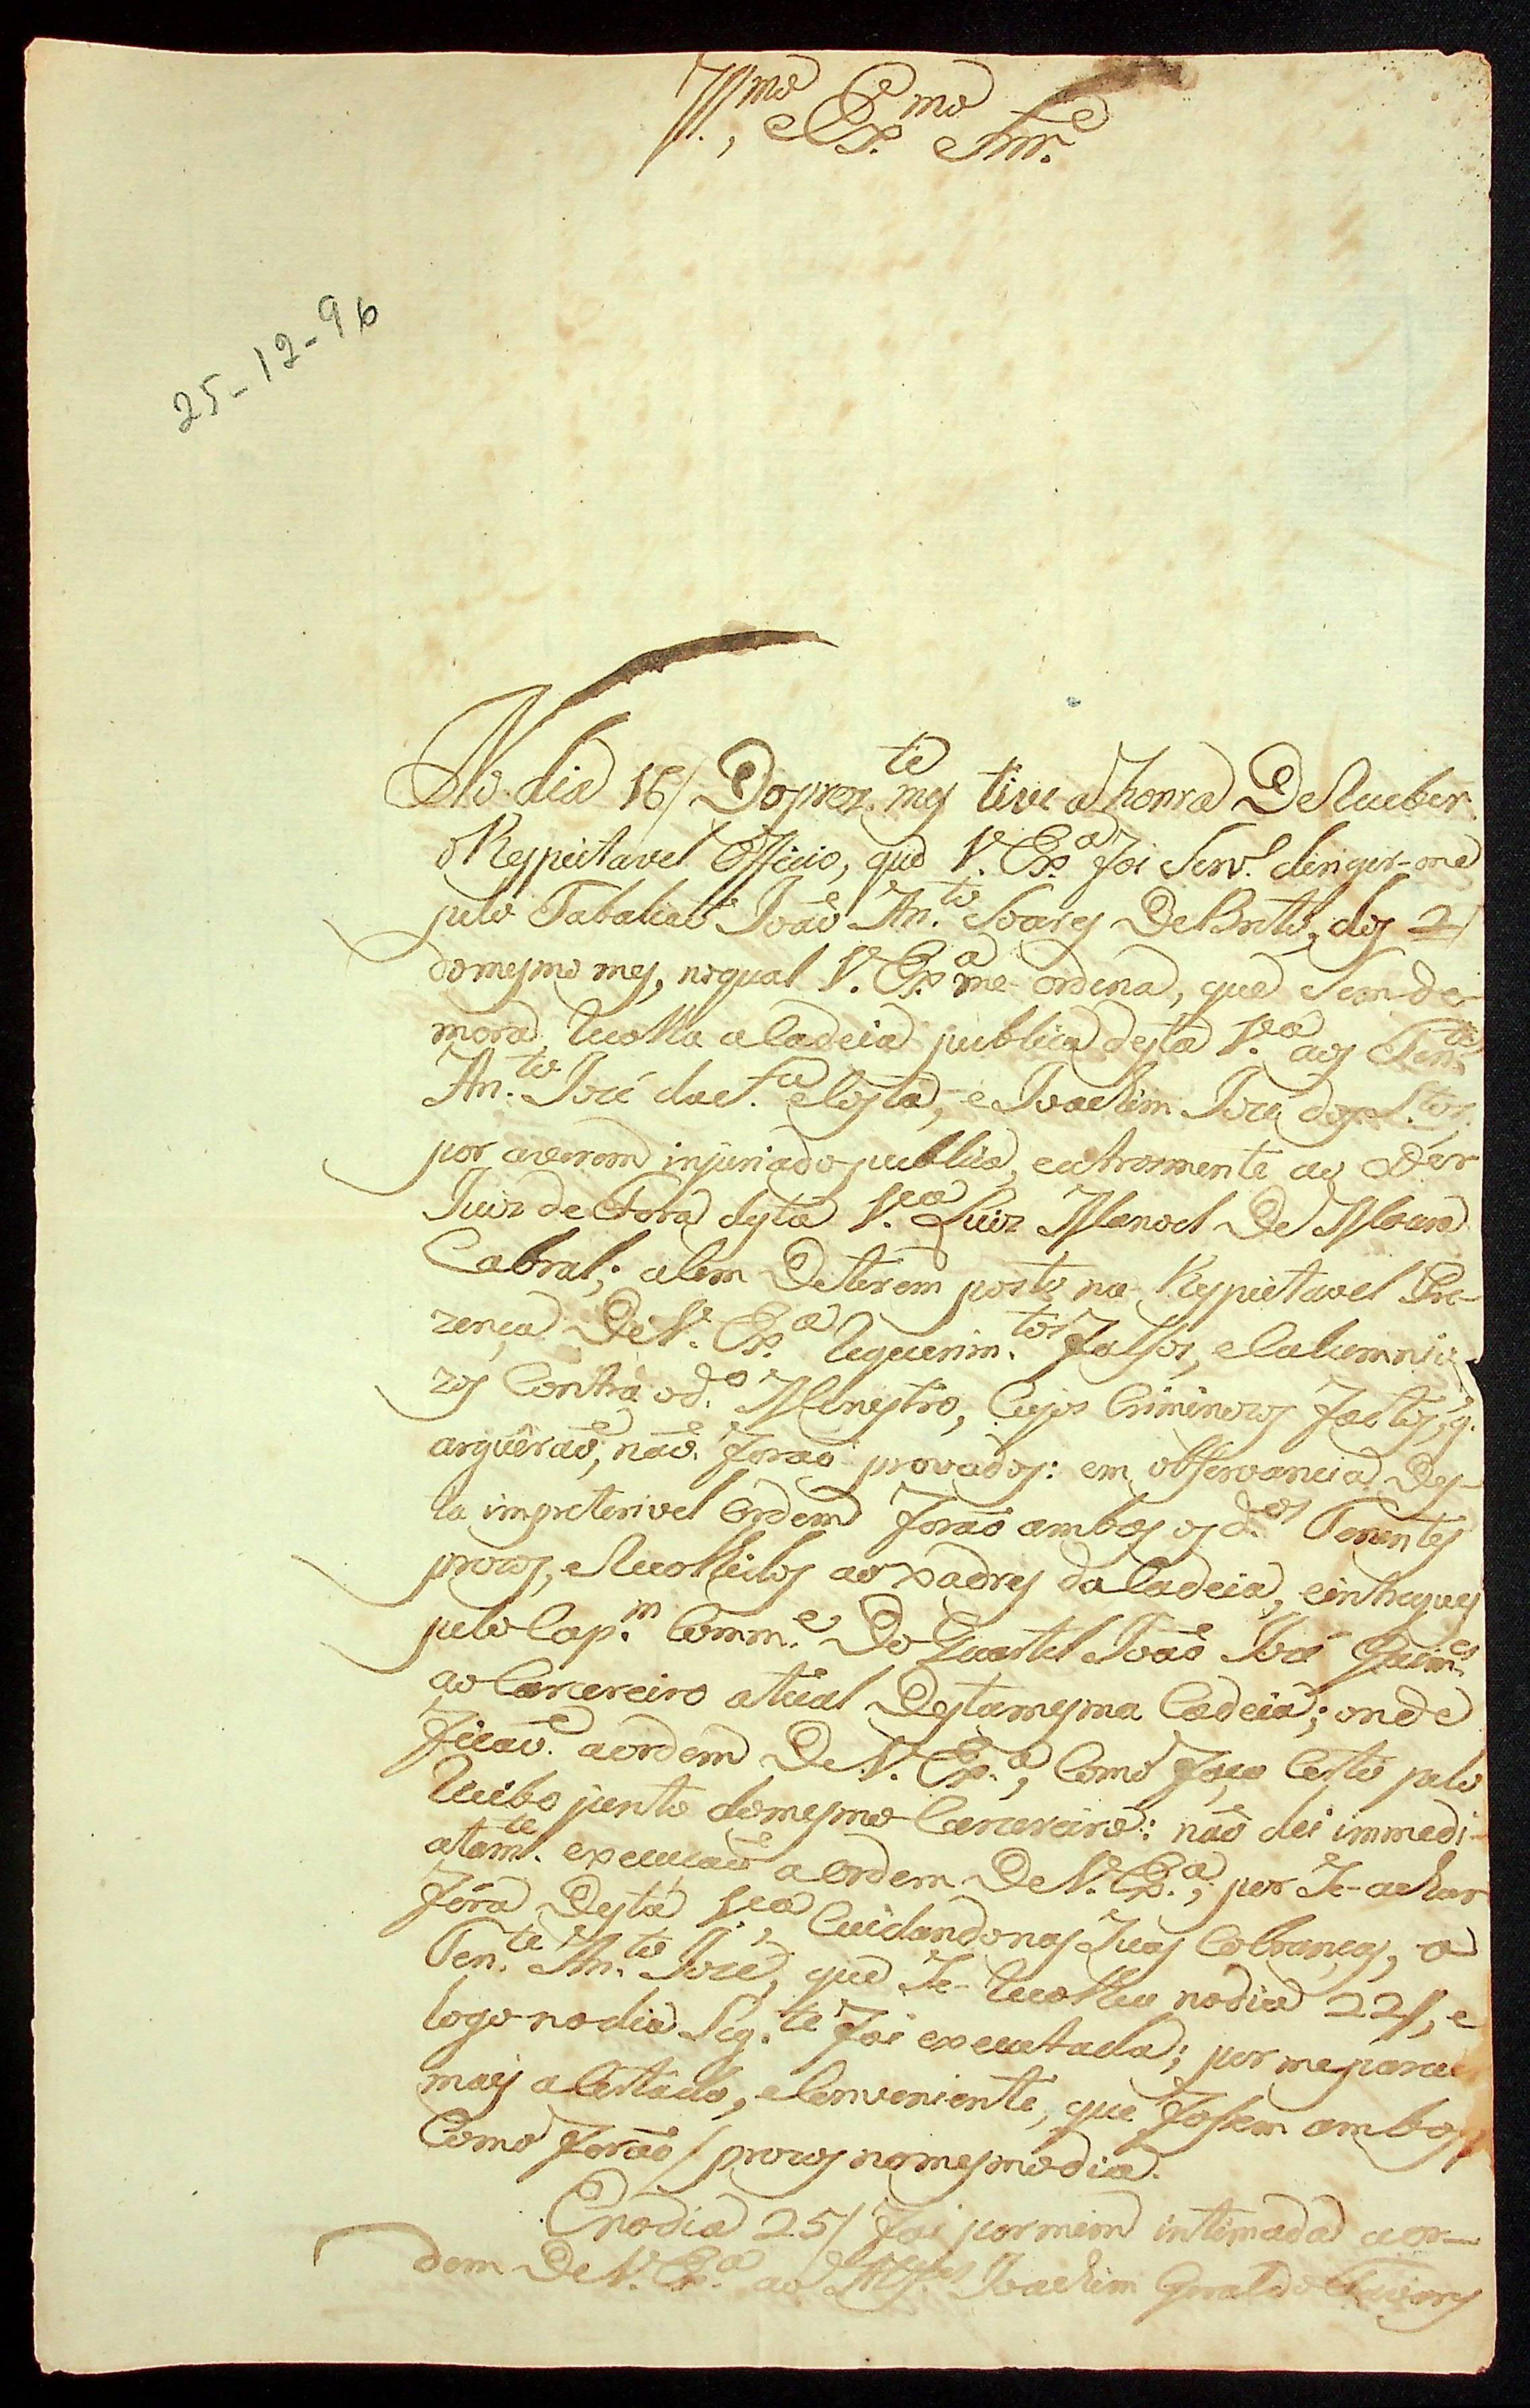 Ill.mo, e Ex.mo Snr.
25-12-96
No dia 16/ Do prez.te mes tive a honra De Receber
o Respeitavel Officio, que V. Ex.a foi Serv.l derigir-me
pelo Tabaliaõ Joaõ An.to Soares De Brito, dos 2/
do mesmo mes, no qual V. Ex.a me ordena, que Sem de-
mora Recolha a Cadeia publica desta V.a aos Ten.tes
An.to Jozé da F.ca e Costa, e Joachim Jozé dos S.tos,
por averem injuriado publica, e atrosmente ao D.er
Juiz de Fora desta V.a Luiz Manoel De Moura
Cabral; alem De terem posto na Respeitavel Pre-
zença De V. Ex.a Requerim.tos falsos, e Calumnio-
zos Contra o d.o Menistro, Cujos Criminozos factos, q.
arguêraõ, naõ foraõ provados: em observancia Des-
ta impreterivel Ordem foraõ ambos os d.os Tenentes
prezos, e Recolhidos ao xadres da Cadeia, e intregues
pelo Cap.m Comm.e Do Quartel Joaõ Jozé Guim.es
ao Carcereiro atual Desta mesma Cadeia; onde
ficaõ a ordem De V. Ex.a, Como faço Certo pelo
Recibo junto do mesmo Carcereiro: naõ dei immedi-
atam.te execuçaõ a Ordem De V. Ex.a, por Se-achar
fóra Desta V.a, Cuidando nas Suas Cobranças, o
Ten.te An.to Jozé, que Se-Recolheu no dia 22/, e
logo no dia Seg.te foi executada; por me parecer
mais aCertado, e Conveniente, que foSem ambos/
Como foraõ/ prezos no mesmo dia.
E no dia 25/ foi por mim intimada a or-
dem De V. Ex.a ao Joachim Geraldo Tavares